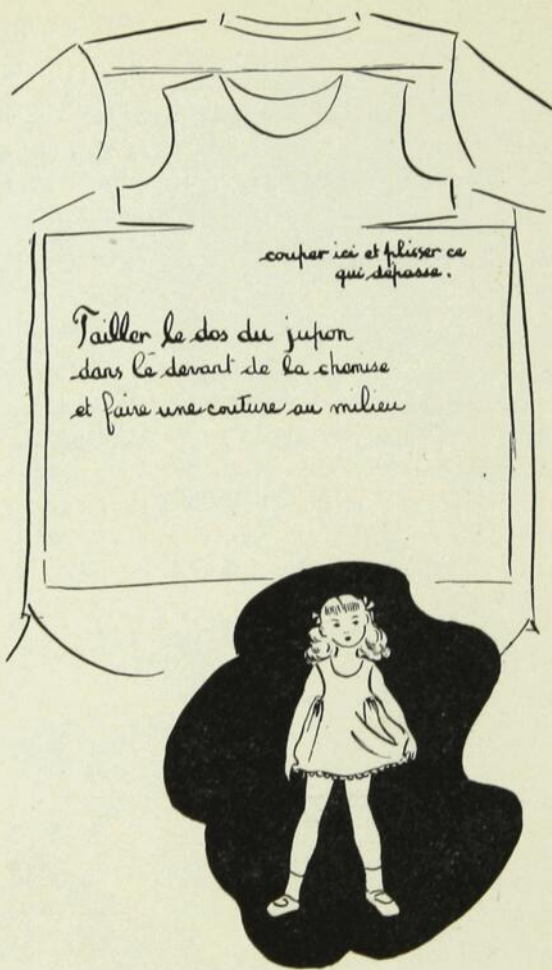 couper ici et plisser ce
qui dépasse.
Tailler le dos du jupon
dans le devant de la chemise
et faire une couture au milieu